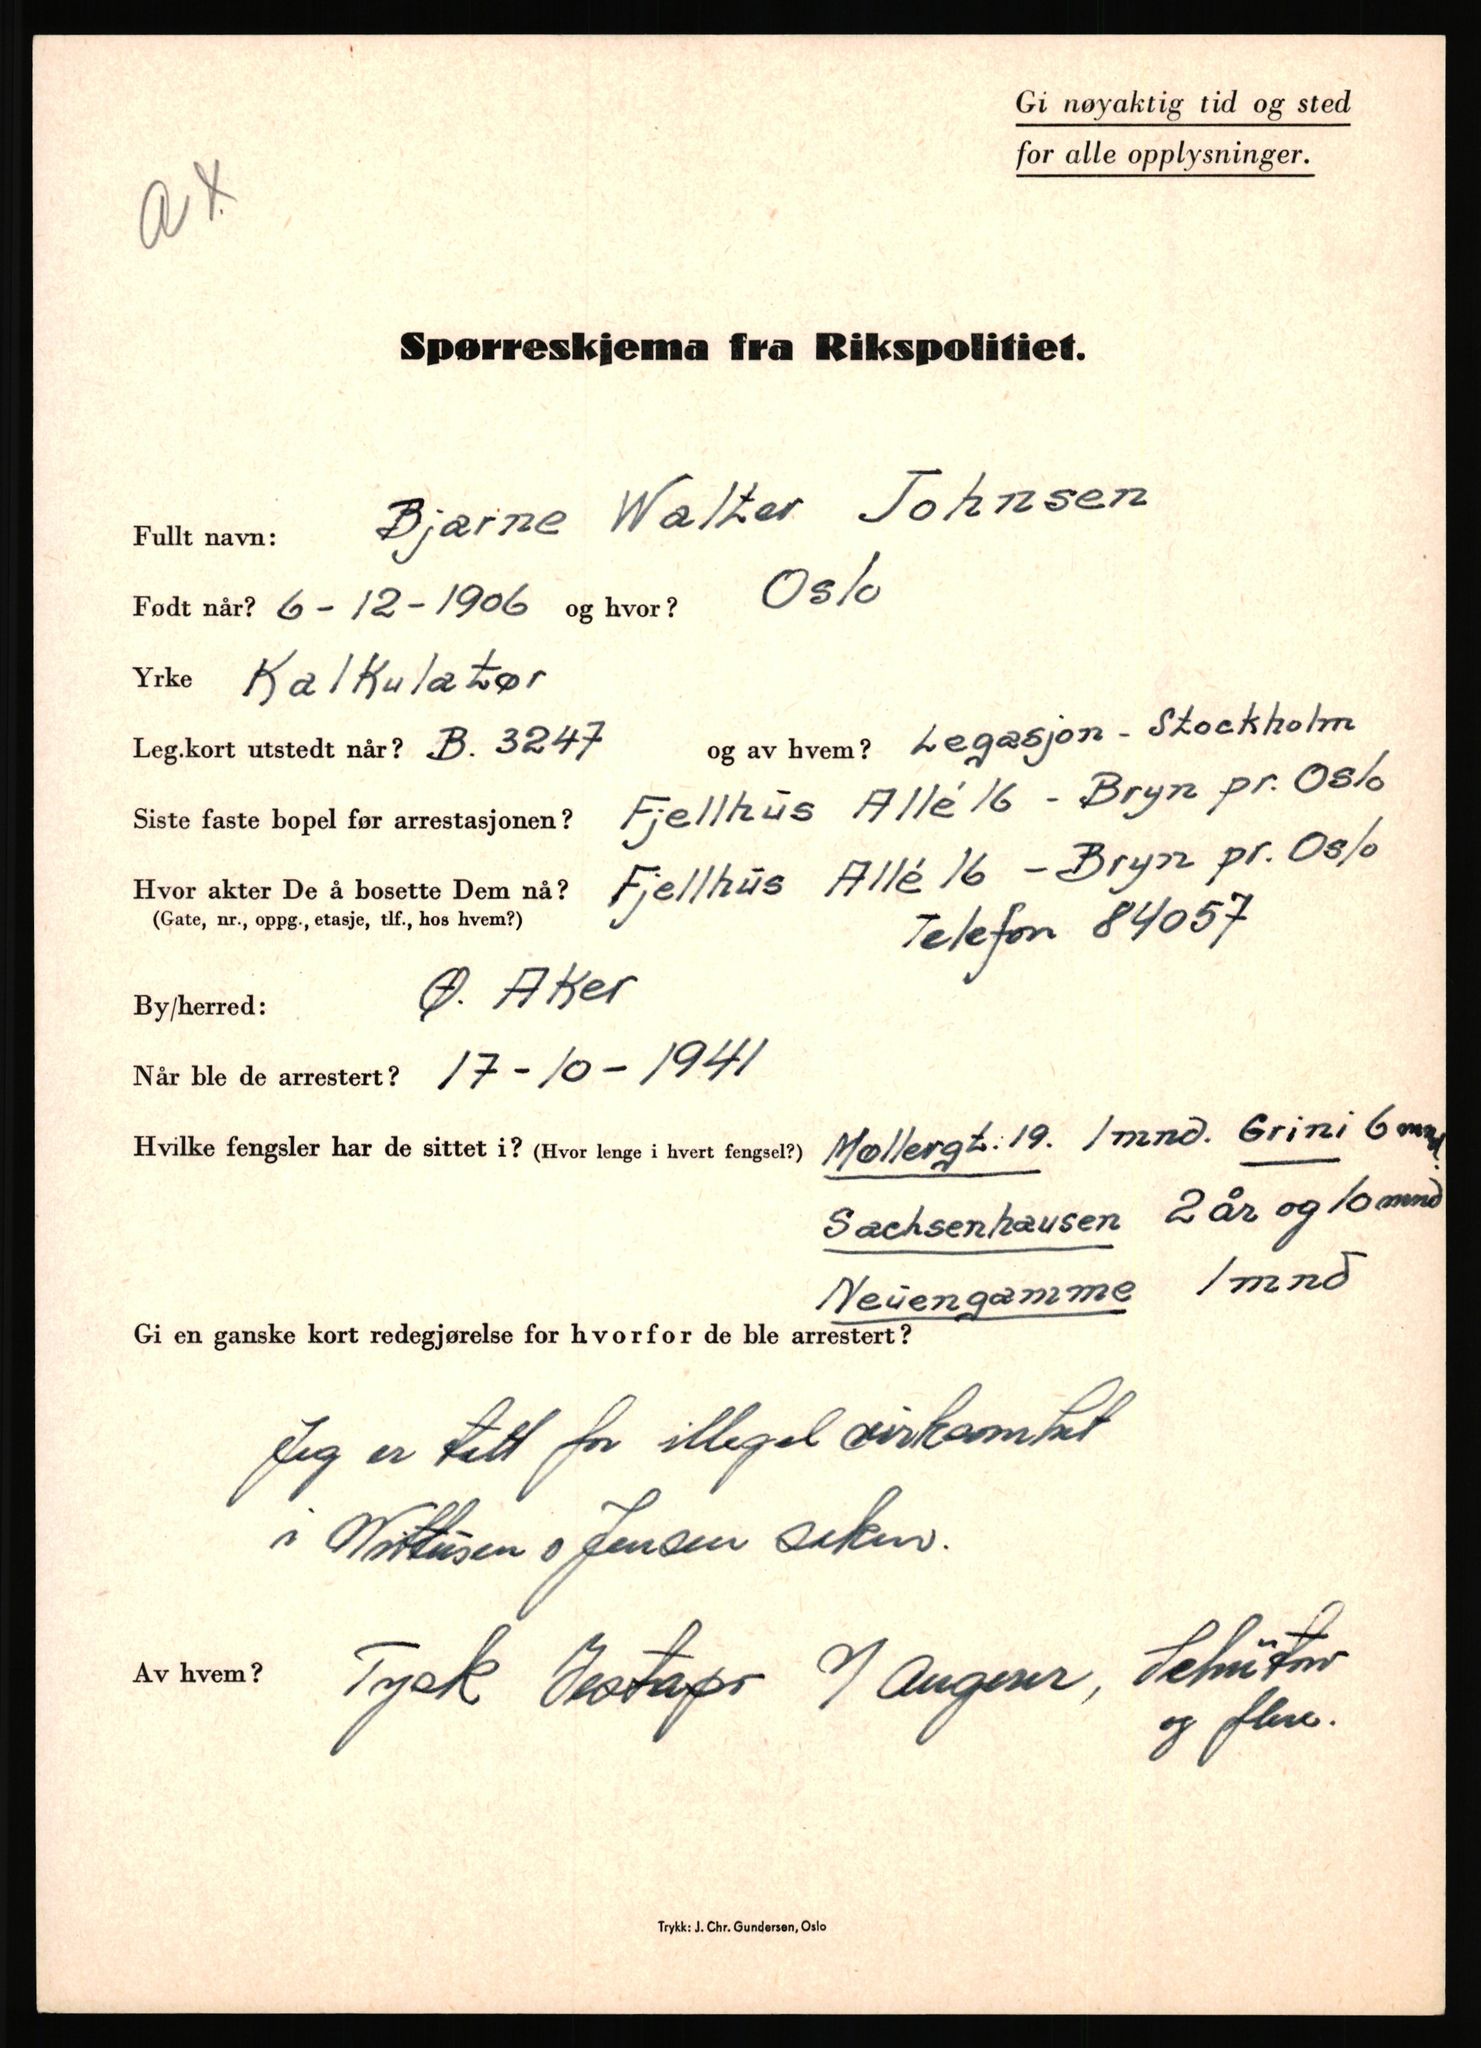 Gi nøyaktig tid og sted
for alle opplysninger.
a x.
Spørreskjema fra Rikspolitiet.
Fullt navn: Bjarne Walter Johnsen
Født når? 6-12-1906 og hvor? Oslo
Yrke Kalkulatør
Leg.kort utstedt når? B. 3247 og av hvem? Legasjon - Stockholm
Siste faste bopel før arrestasjonen? Fjellhus Allé 16 - Bryn pr. Oslo
Hvor akter De å bosette Dem nå? Fjellhus Allé 16 - Bryn pr. Oslo
(Gate, nr., oppg., etasje, tlf., hos hvem?) Telefon 84057
By/herred: Ø. Aker
Når ble de arrestert? 17-10-1941
Hvilke fengsler har de sittet i? (Hvor lenge i hvert fengsel?) Møllergt. 19. 1 mnd. Grini 6 mnd.
Sachsenhausen 2 år og 10 mnd
Neuengamme 1 mnd
Gi en ganske kort redegjørelse for hvorfor de ble arrestert?
Jeg er tatt for illegal virksomhet
i Wittusen o Jensen saken.
Av hvem? Tysk Gestapo v/ Angerer,
og flere.
Trykk: J. Chr. Gundersen, Oslo